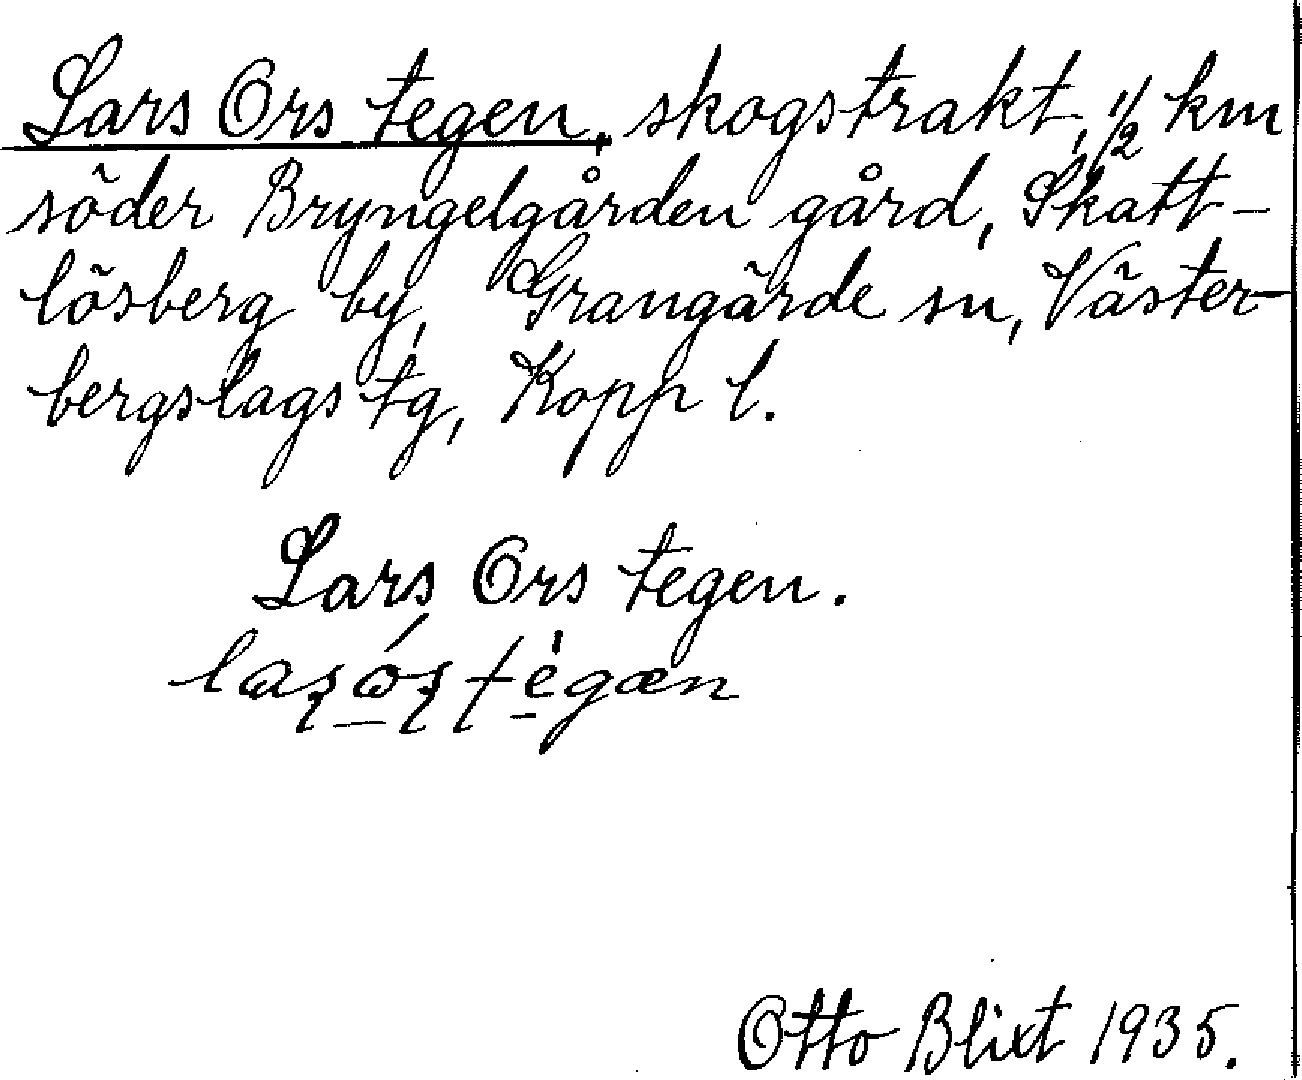 Lars Ors tegen, skogstrakt, 1/2 km
söder Bryngelgården gård, Skatt-
lösberg by, Grangärde sn, Väster-
bergslags tg, Kopp l.
Lars Ors tegen.
Otto Blixt 1935.